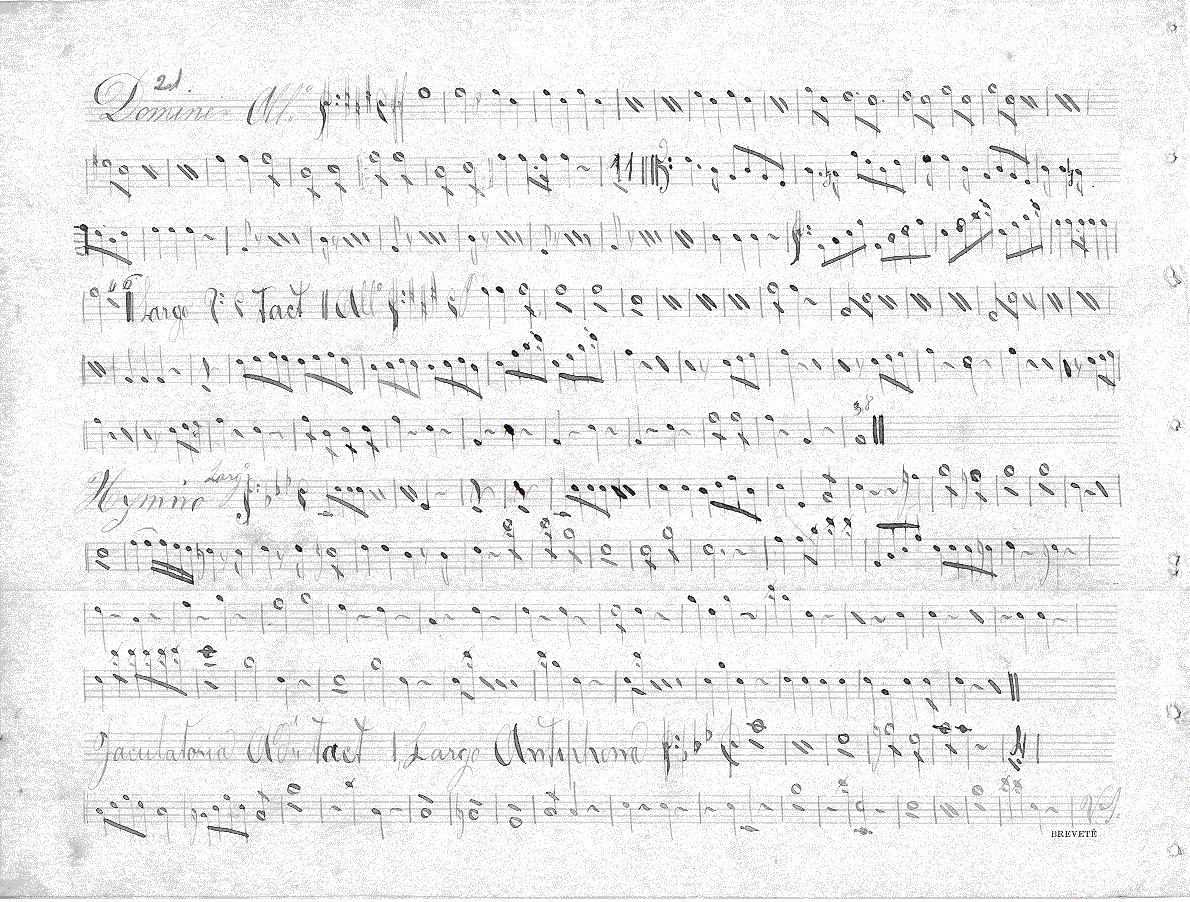 21
Domine Allº
11
Largo Tact Allº
38
Hymno Largº
Jaculatoria Tact Largo Antiphona
V.S.
BREVETÉ